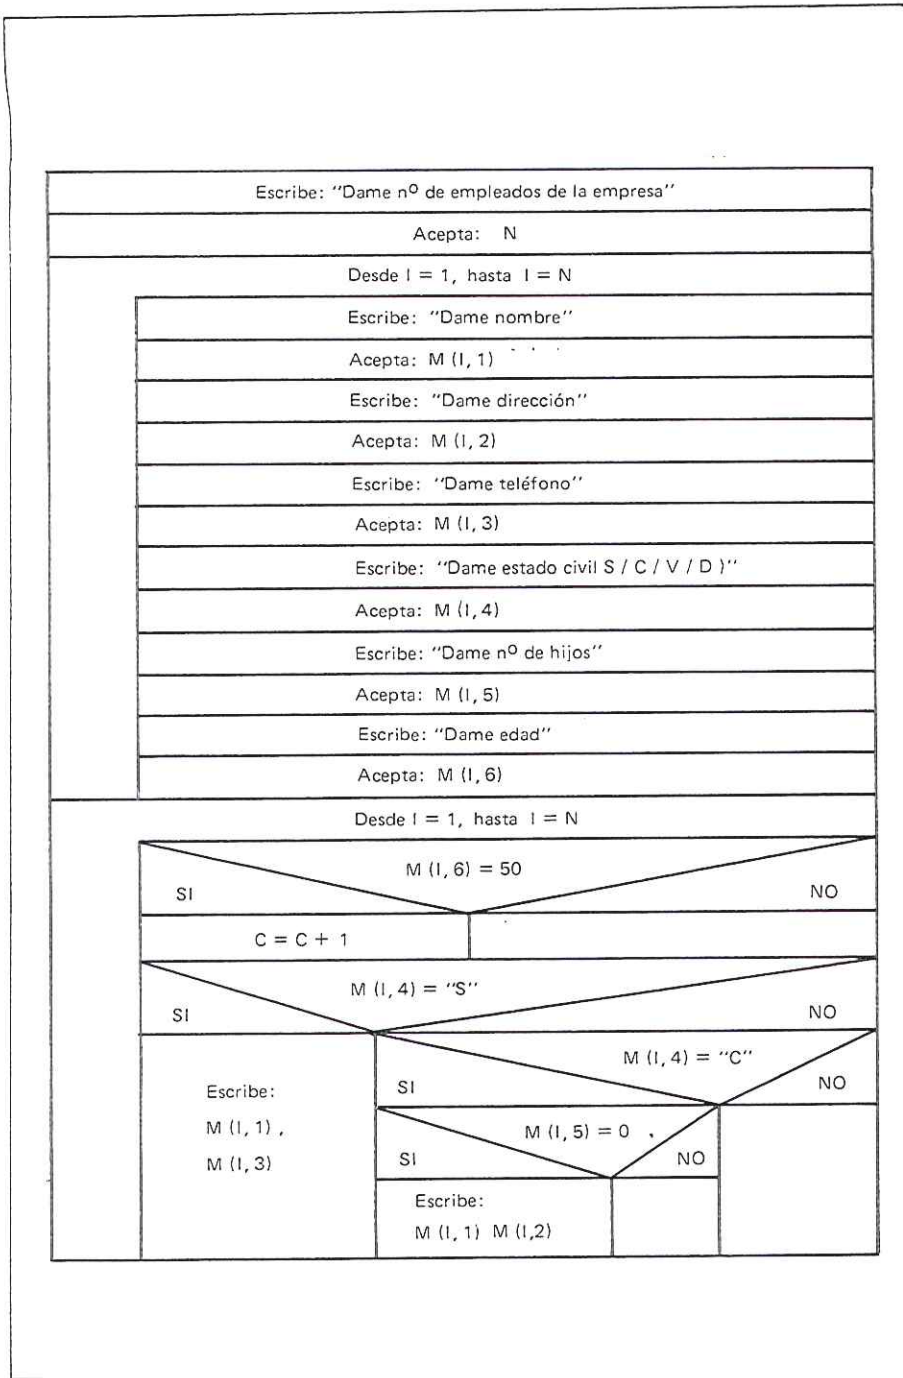 Escribe: "Dame nº de empleados de la empresa"
Acepta: N
Desde I = 1, hasta I = N
Escribe: "Dame nombre"
Acepta: M (I, 1)
Escribe: "Dame dirección"
Acepta: M (I, 2)
Escribe: "Dame teléfono"
Acepta: M (I, 3)
Escribe: "Dame estado civil S / C / V / D )"
Acepta: M (I, 4)
Escribe: "Dame nº de hijos"
Acepta: M (I, 5)
Escribe: "Dame edad"
Acepta: M (I, 6)
Desde I = 1, hasta I = N
M (I, 6) = 50
SI NO
C = C + 1
M (I, 4) = "S"
SI NO
M (I, 4) = "C"
SI NO
Escribe:
M (I, 1) ,
M (I, 3)
M (I, 5) = 0
SI NO
Escribe:
M (I, 1) M (I,2)